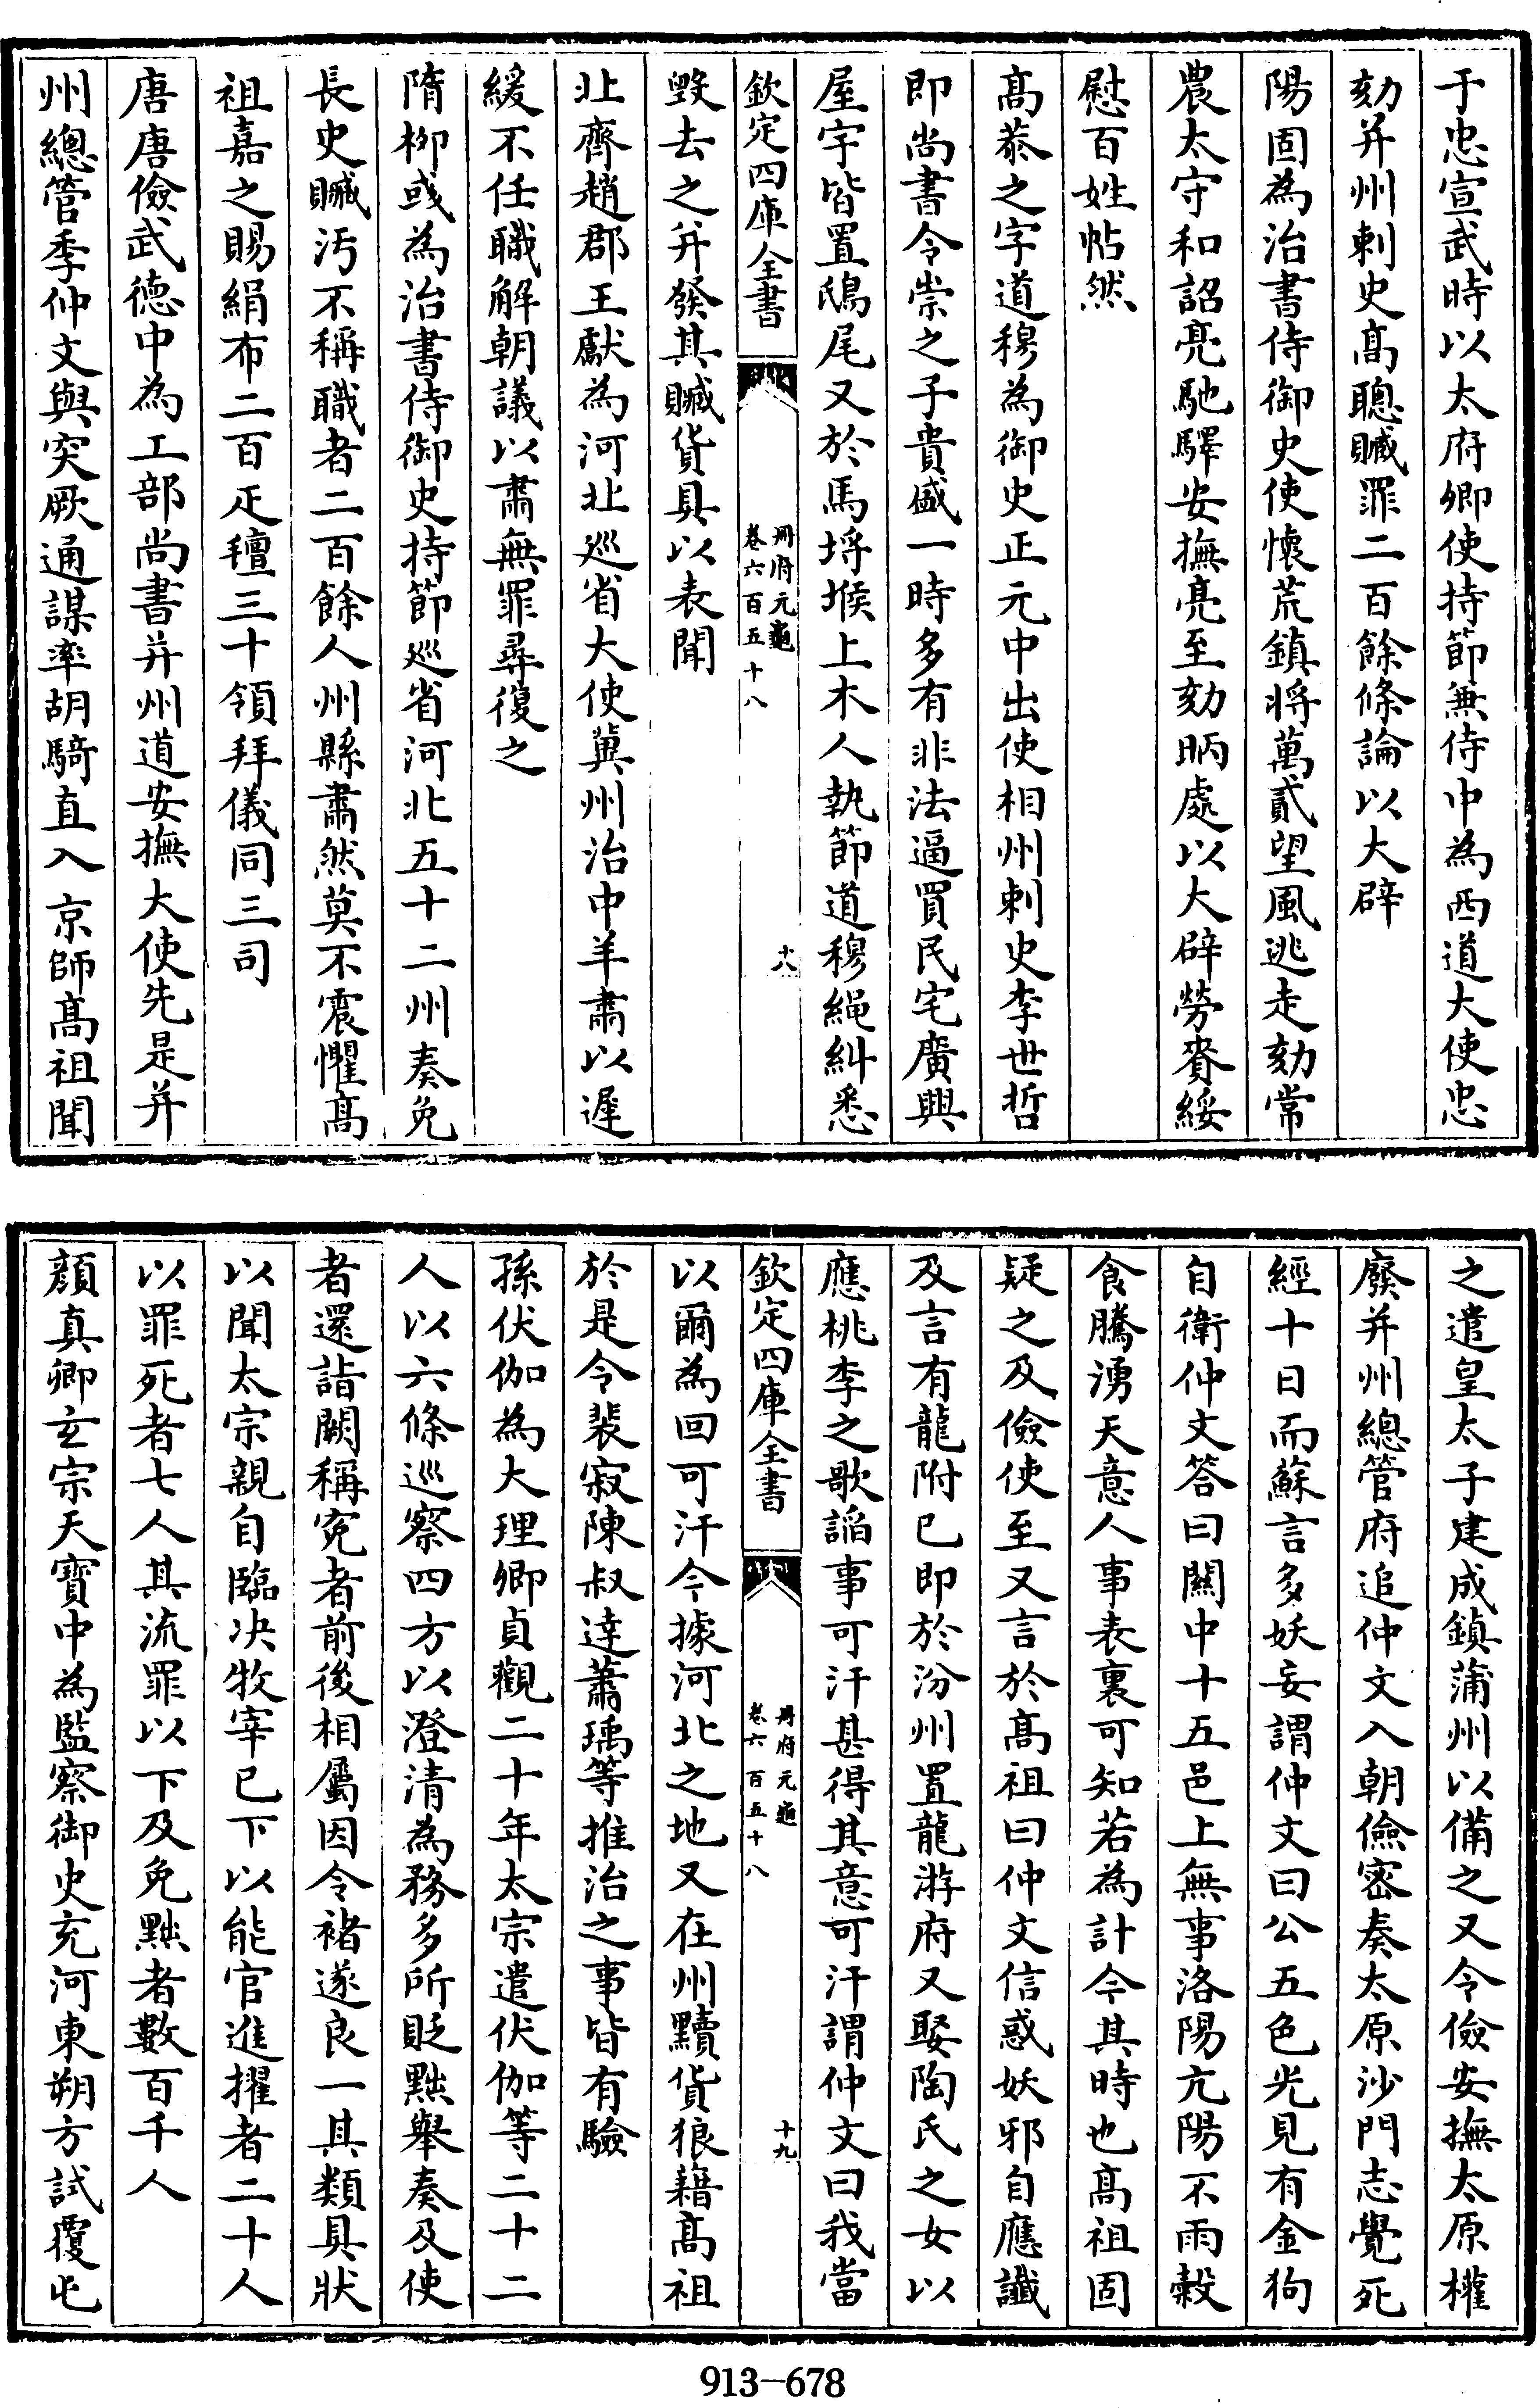 于忠宣武時以太府卿使持節兼侍中為西道大使忠
劾并州刺史髙聰贓罪二百餘條論以大辟
陽固為治書侍御史使懷荒鎮將萬貳望風逃走劾常
農太守和詔亮馳驛安撫亮至劾昞處以大辟勞賚綏
慰百姓帖然
髙恭之字道穆為御史正元中出使相州刺史李世哲
即尚書令崇之子貴盛一時多有非法逼買民宅廣興
屋宇皆置鴟尾又於馬埒堠上木人執節道穆繩糾悉
欽定四庫全書
冊府元龜
卷六百五十八
十八
毀去之并發其贓貨具以表聞
北齊趙郡王獻為河北巡省大使冀州治中羊肅以遲
緩不任職解朝議以肅無罪尋復之
隋柳彧為治書侍御史持節巡省河北五十二州奏免
長史贓汚不稱職者二百餘人州縣肅然莫不震懼髙
祖嘉之賜絹布二百疋氊三十領拜儀同三司
唐唐儉武德中為工部尚書并州道安撫大使先是并
州總管季仲文與突厥通謀率胡騎直入京師髙祖聞
之遣皇太子建成鎮蒲州以備之又令儉安撫太原權
廢并州總管府追仲文入朝儉密奏太原沙門志覺死
經十日而蘇言多妖妄謂仲文曰公五色光見有金狗
自衛仲文答曰闗中十五邑上無事洛陽亢陽不雨榖
食騰湧天意人事表裏可知若為計今其時也髙祖固
疑之及儉使至又言於髙祖曰仲文信惑妖邪自應讖
及言有龍附已即於汾州置龍游府又娶陶氏之女以
應桃李之歌謟事可汗甚得其意可汗謂仲文曰我當
欽定四庫全書
冊府元龜
卷六百五十八
十九
以爾為回可汗今據河北之地又在州黷貨狼藉髙祖
於是令裴寂陳叔達蕭瑀等推治之事皆有驗
孫伏伽為大理卿貞觀二十年太宗遣伏伽等二十二
人以六條巡察四方以澄清為務多所貶黜舉奏及使
者還詣闕稱寃者前後相屬因令褚遂良一其類具狀
以聞太宗親自臨決牧宰已下以能官進擢者二十人
以罪死者七人其流罪以下及免黜者數百千人
顔真卿玄宗天寶中為監察御史充河東朔方試覆屯
913-678